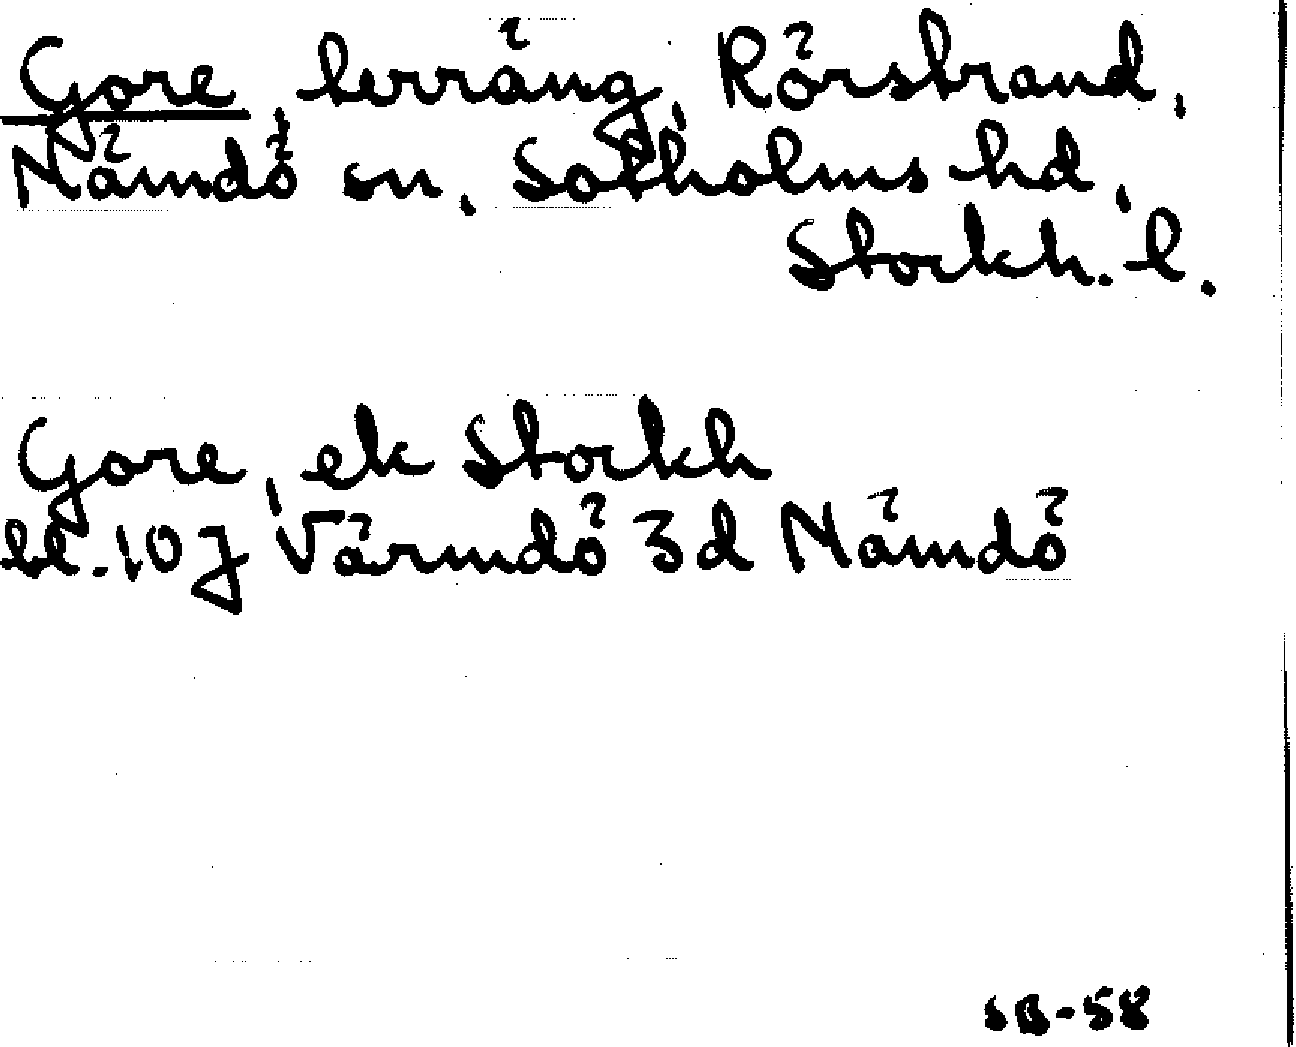 Gore, terräng, Rörstrand,
Nämdö sn, Sotholms hd,
Stockh. l.
Gore, ek Stockh
bl. 10J Värmdö 3d Nämdö
SB-58